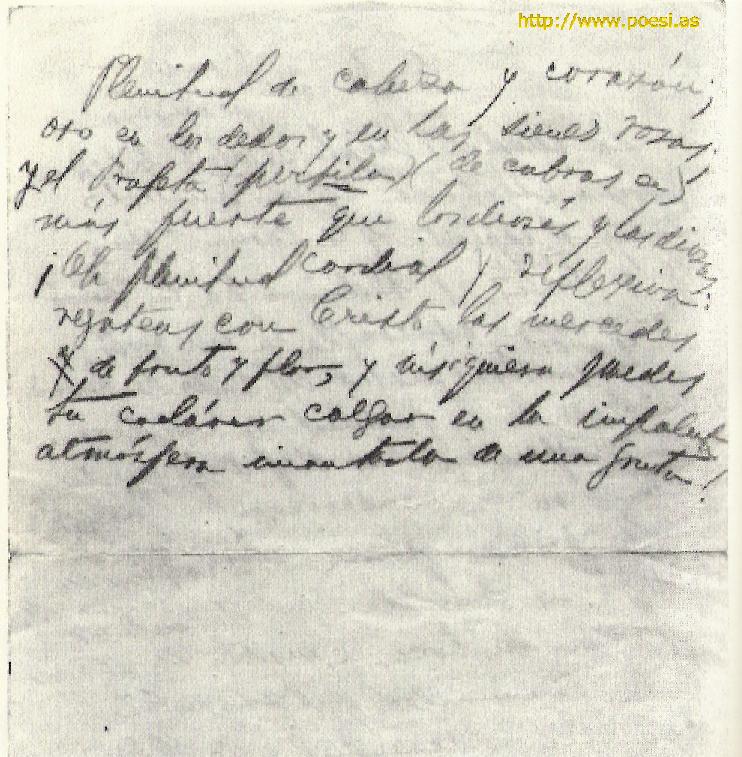 http://www.poesi.as
Plenitud de cabeza y corazón;
oro en los dedos y en las sienes rosas;
y el Profeta perfilase de cabras
más fuerte que los dioses y las diosas.
¡Oh plenitud cordial y reflexiva:
regateas con Cristo las mercedes
de fruto y flor, y ni siquiera puedes
tu cadáver colgar en la impoluta
atmósfera imantada de una gruta!